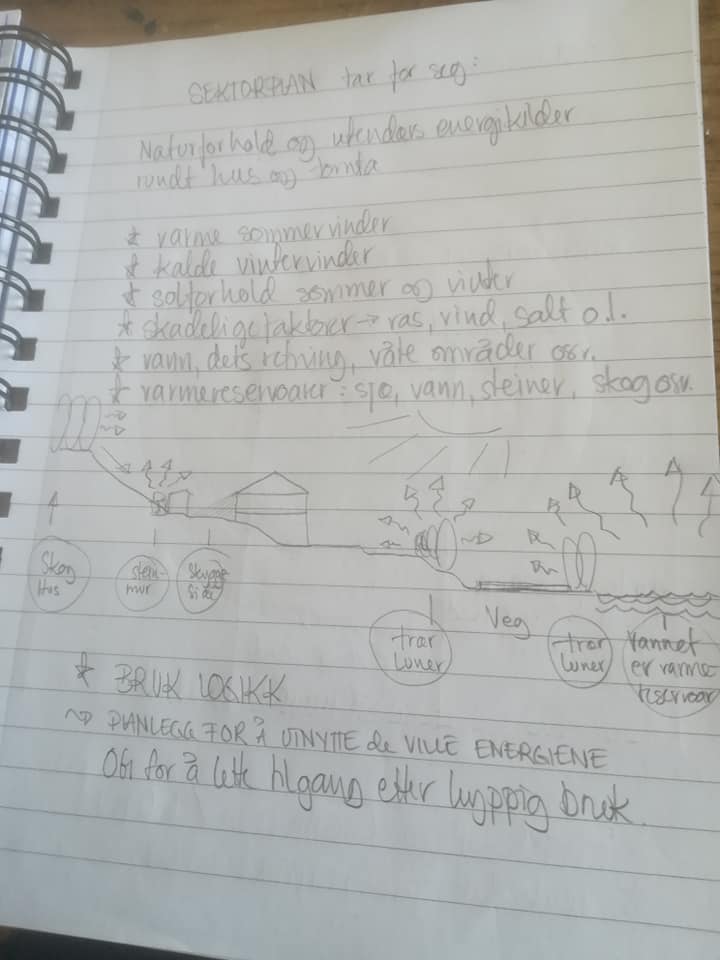 SEKTORPLAN tar for seg:
Naturforhold og utendørs energikilder
rundt hus og tomta
* varme sommervinder
* kalde vintervinder
* solforhold sommer og vinter
* skadelige faktorer → ras, vind, salt o.l.
* vann, dets retning, våte områder osv.
* varmereservoarer: sjø, vann, steiner, skog osv.
Skog
Hus
stein-
mur
skygge
side
trær
luner
Veg
trær
luner
Vannet
er varme-
reservoar
* BRUK LOGIKK
~> PLANLEGG FOR Å UTNYTTE de VILLE ENERGIENE
OG for å lette tilgang etter hyppig bruk.